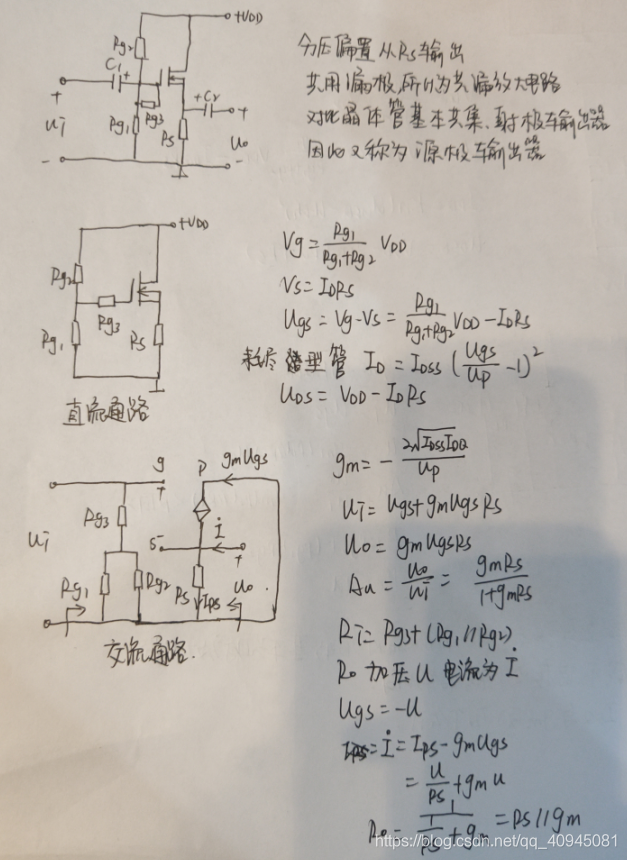 +VDD
Rg2
C1
+
+
Rg3
+C2
+
Ui
Rg1
Rs
Uo
-
-
分压偏置从Rs输出
共用漏极,所以为共漏放大电路
对比晶体管基本共集、射极输出器
因此又称为源极输出器
+VDD
Rg2
Rg3
Rg1
Rs
直流通路
Vg = Rg1/(Rg1+Rg2) VDD
Vs = IDRs
Ugs = Vg-Vs = Rg1/(Rg1+Rg2) VDD - IDRs
耗尽型管 ID = IDSS (Ugs/Up - 1)²
UDS = VDD - IDRs
g
+
D
gmUgs
Rg3
Ui
s-
İ
+
Rg1
Rg2
Rs
IRS
Uo
交流通路.
gm = - 2√IDSSIDQ/Up
Ui = Ugs+gmUgsRs
Uo = gmUgsRs
Au = Uo/Ui = gmRs/(1+gmRs)
Ri = Rg3+(Rg1//Rg2)
Ro 加压U 电流为 İ
Ugs = -U
= İ = IRS - gmUgs
= U/Rs + gmU
Ro = 1/(1/Rs + gm) = Rs//gm
https://blog.csdn.net/qq_40945081